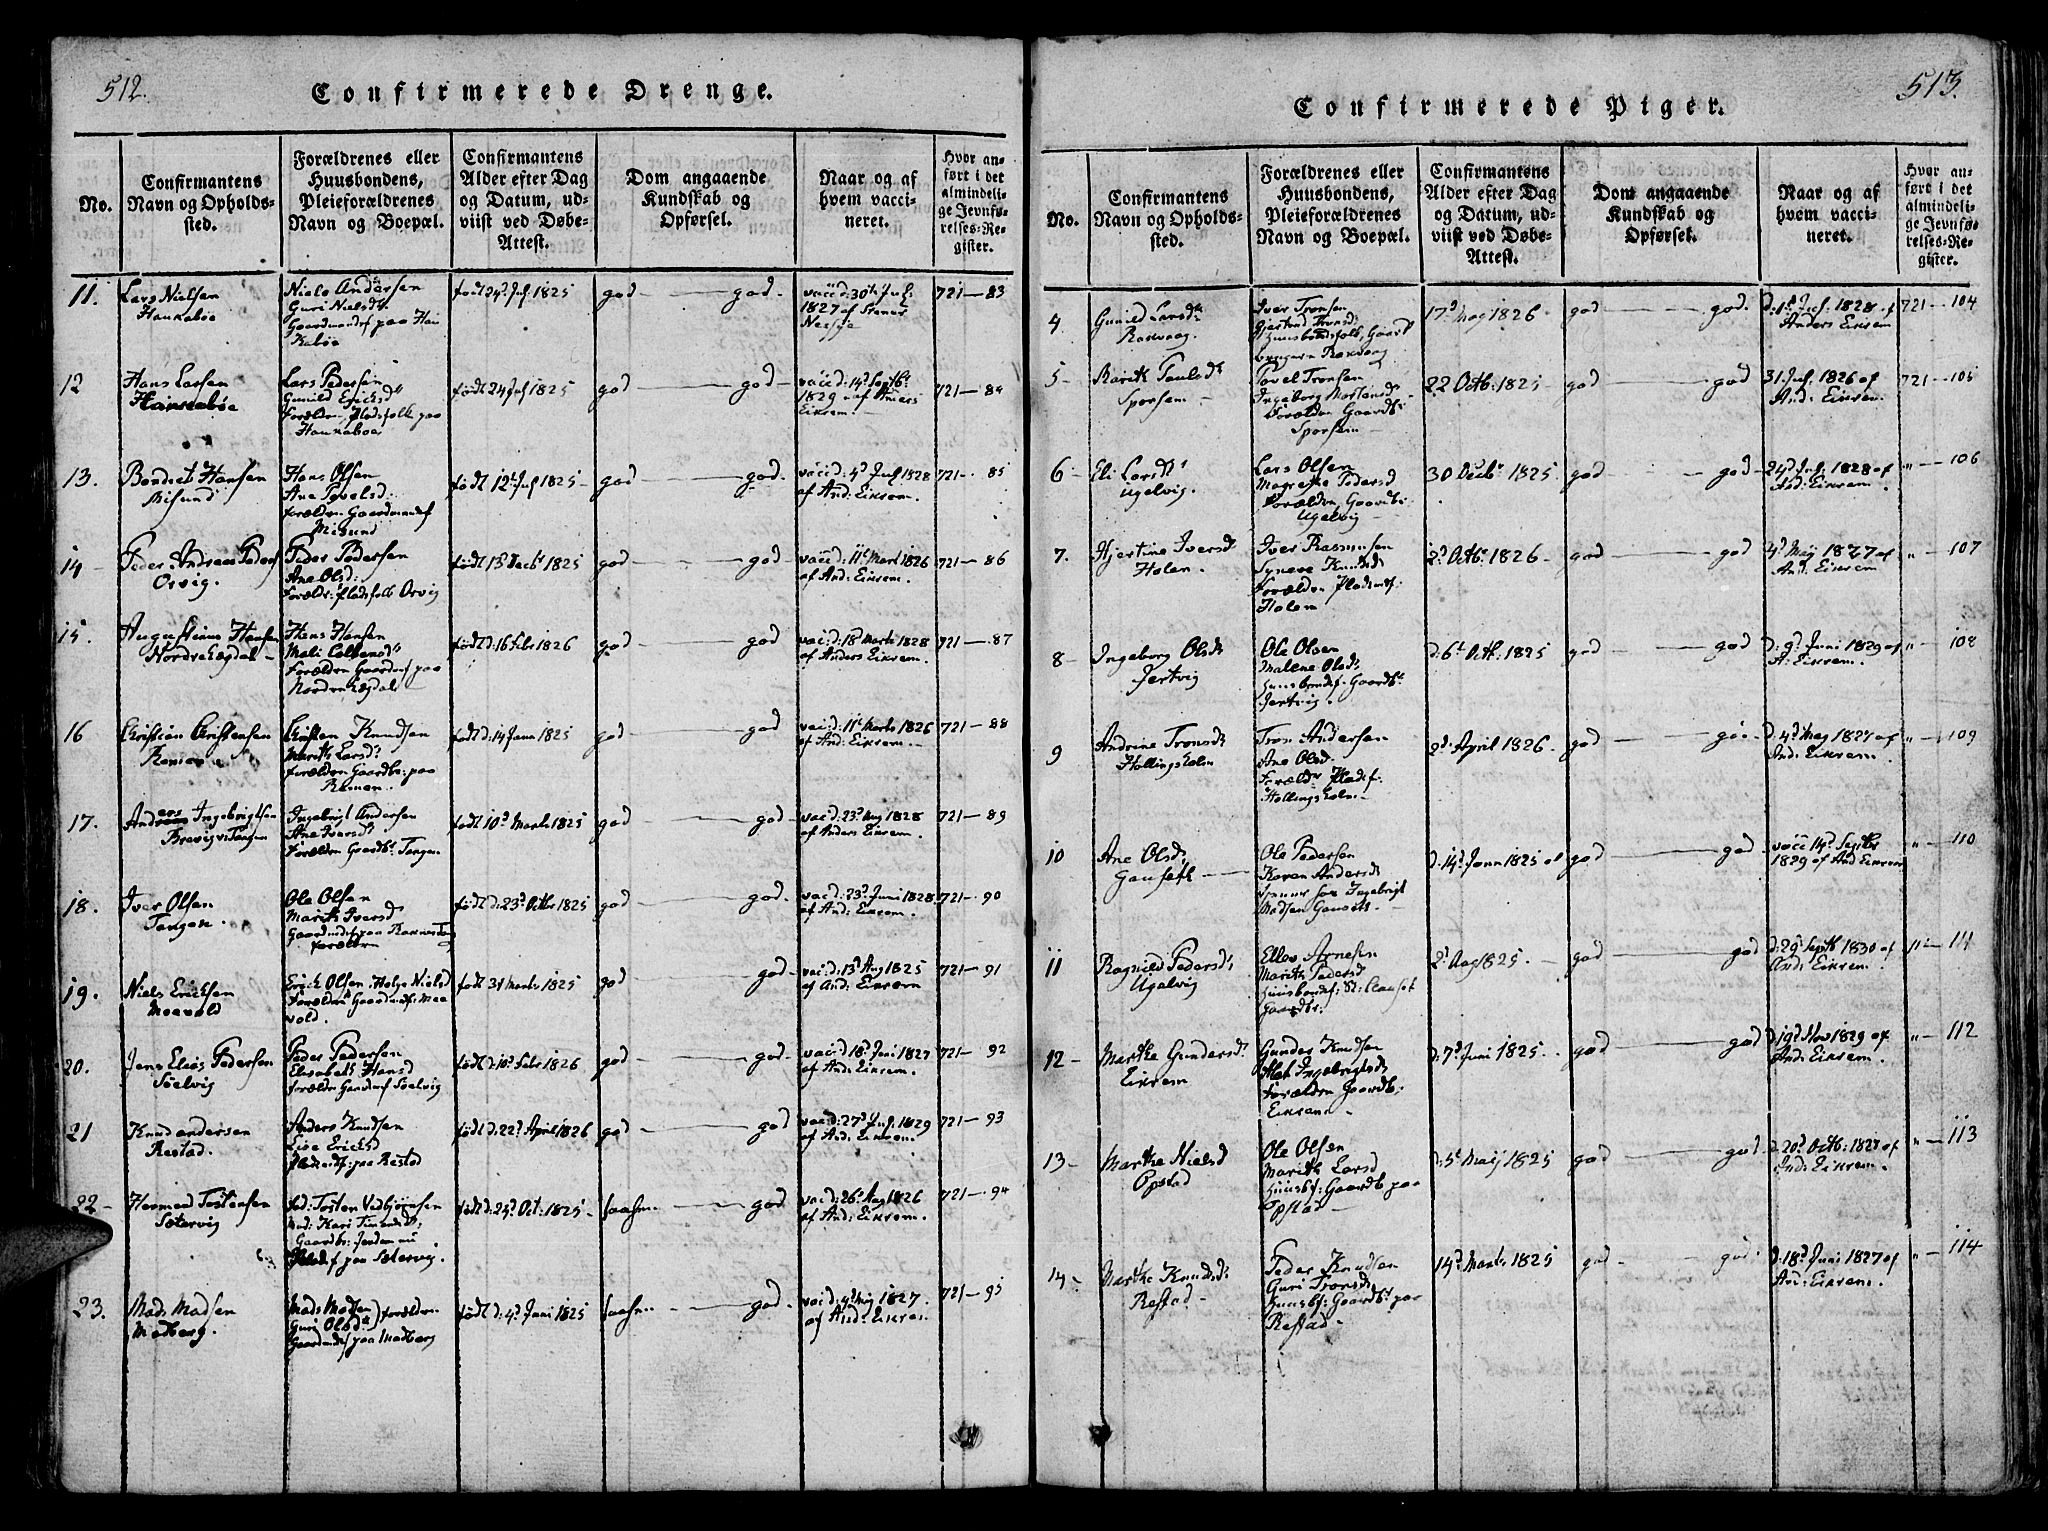 512.
Confirmerede Drenge.
No.
Confirmantens Navn og Opholds-sted.
Forældrenes eller Huusbondens, Pleieforældrenes Navn og Boepæl.
Confirmantens Alder efter Dag og Datum, ud-viist ved Døbe-Attest.
Dom angaaende Kundskab og Opførsel.
Naar og af hvem vacci-neret.
Hvor an-ført i det almindeli-ge Jevnfø-relses-Re-gister.
11. Lars Nielsen
Haukabøe
Niels Andersen
Guri Nielsdr
Gaardmandsf paa Hau
kabøe
født 24d Jul. 1825
god — god.
vaccd: 30te Jul:
1827 af Stener
721—83
12 Hans Larsen
Haukabøe
Lars Pedersen
Gunild Ericksdr
Forældrn Pladsfolk paa
Haukabøe
født 24 Jul 1825
god — god
vaccd: 14d Septbr
1829 af Anders
Eikrem.
721—84
13. Hansen
Misund
Hans Olsen
Ane Povelsd.
forældrn Gaardmandsf
Misund
født 12t Jul 1825
god — god.
vaccd: 4d Jul 1828
af And: Eikrem.
721—85
14 Peder Andreas Peders
Orvig.
Peder Pedersen
Ane Olsd:
Forældr: pladsfolk Orvig
født 13 Decbr 1825
god — god
vaccd: 11t Mart 1826
af And: Eikrem.
721—86
15. Augustinus Hansen
Nordre Egdal
Hans Hansen
Mali
Forældrn Gaardmf paa
Nordre Egdal
født d: 16 Febr 1826
god — god
vacd: 18d Marts 1828
af Anders Eikrem.
721—87
16 Christian Christensen
Christen Knudsen
Marith Larsd:
forældrn Gaardbr: paa
født d: 14 Janu 1825
god — god
vacd: 11t Marts 1826
af And: Eikrem.
721—88
17. Anders Ingebrigtsen
Brevigs Tangen
Ingebrigt Andersen
Ane Iversd:
Forældrn Gaardbr Tangen
født 10d Marts 1825
god — god
vacd: 23d Maj 1828
af Anders Eikrem.
721—89
18. Iver Olsen
Tangen.
Ole Olsen
Marith Iversd
forældrn
født d: 23d Octbr 1825
god — god.
vacd: 23d Juni 1828
af And: Eikrem.
721—90
19. Niels Ericksen
Moevold
Erick Olsen, Helge Nielsd
Forældrn Gaardmdsf: Moe
vold.
født 31 Marts 1825
god — god
vacd: 13d Aug 1825
af And: Eikrem
721—91
20. Jens Elias Pedersen
Sølvig
Peder Pedersen
Elisabeth Hansd
forældrn Gaardmf Sølvig
født d: 10d Febr 1826
god — god.
vacd: 18d Juni 1827
af And: Eikrem.
721—92
21 Knud Andersen
Restad.
Anders Knudsen
Lise Ericksd
Pladsmdsf: paa Restad
født d: 22d April 1826
god — god
vacd: 27d Jul. 1829
af And: Eikrem
721—93
22 Herman Tostensen
Sætervig
Tosten
Kari
paa Sætervig
født d: 23d Oct: 1825
saasom — god
vacd: 26d Aug 1826
af And: Eikrem.
721—94
23. Mads Madsen
Madberg.
Mads Madsen
Guri Olsdr) forældrn
Gaardmdsf paa Madberg
født d: 4d Juni 1825
saasom — god.
vacd: 4d Maj 1827.
af And: Eikrem.
721—95
513.
Confirmerede Piger.
No.
Confirmantens Navn og Opholds-sted.
Forældrenes eller Huusbondens, Pleieforældrenes Navn og Boepæl.
Confirmantens Alder efter Dag og Datum, ud-viist ved Døbe-Attest.
Dom angaaende Kundskab og Opførsel.
Naar og af hvem vacci-neret.
Hvor an-ført i det almindeli-ge Jevnfø-relses-Re-gister.
4 Gunild Larsdr
Rakvaag.
Iver Tronsen
Gjertrud Tronsd:
Huusbondsfolk, Gaard
brugere Rakvaag
17d Maj 1826
god — god.
d: 1st Jul. 1828 af
Anders Eikrem
721—104
5 Marith Paulsdr
Sporsem
Povel Tronsen
Ingeborg Mortensd
Forældrn Gaardbr
Sporsem
22 Octb: 1825
god — god
31 Jul. 1826 af
And: Eikrem.
721—105
6 Eli Larsdr
Ugelvig.
Lars Olsen
Magrethe Pedersd
Forældrn, Gaardbr
Ugelvig
30 Decbr 1825
god — god
24d Jul. 1828 af
And: Eikrem.
" — 106
7. Hjertine Iversdr
Holen
Iver Rasmusen
Synneve Knudsd
Forældrn Pladsmf:
Holem
2d Octbr 1826
god — god
4d Maj 1827 af
And: Eikrem
" — 107
8 Ingeborg Olsdr
Jertvig
Ole Olsen
Malene Olsdr
Huusbondsf: Gaardbr
Jertvig.
d: 6t Octb: 1825
god — god
d: 9d Juni 1829 af
A: Eikrem.
" — 108
9 Andrine Tronsdr
Hollingsholm
Tron Andersen
Ane Olsd.
Forældr Pladsf:
Hollingsholm
2d April 1826
god — god
d: 4d Maj 1827 af
And: Eikrem.
" — 109
10 Ane Olsdr
Gauseth
Ole Pedersen
Karen Andersd
tjener hos Ingebrigt
Madsen Gauseth
d: 14d Janu 1825
god — god
vacc 14d Septbr
1829 af And Eikrem
" — 110
11 Ragnild Pedersdr
Ugelvig
Ellev Arnesen
Marith Pedersd
Huusbondsf:
Gaardbr:
2d Aug 1825.
god — god
d: 29d Septb 1830 af
And: Eikrem.
" — 111
12 Marthe Gundersdr
Eikrem
Gunder Knudsen
Ingebrigtsdr
Forældrn Gaardbr:
Eikrem
d: 7d Juni 1825
god — god
d: 19d Nov 1829 af
And: Eikrem.
" — 112
13 Marthe Nielsd
Opstad
Ole Olsen
Marith Larsd
Huusbf: Gaardb paa
Opstad
d: 5t Maij 1825
god — god
d: 20d Octb: 1827 af
And: Eikrem.
" — 113
14 Marthe Knudsdr
Restad
Peder Knudsen
Guri Tronsdr
Huusbf: Gaardbr paa
Restad
14d Marts 1825
god — god
d: 18d Juni 1827 af
And: Eikrem.
" — 114